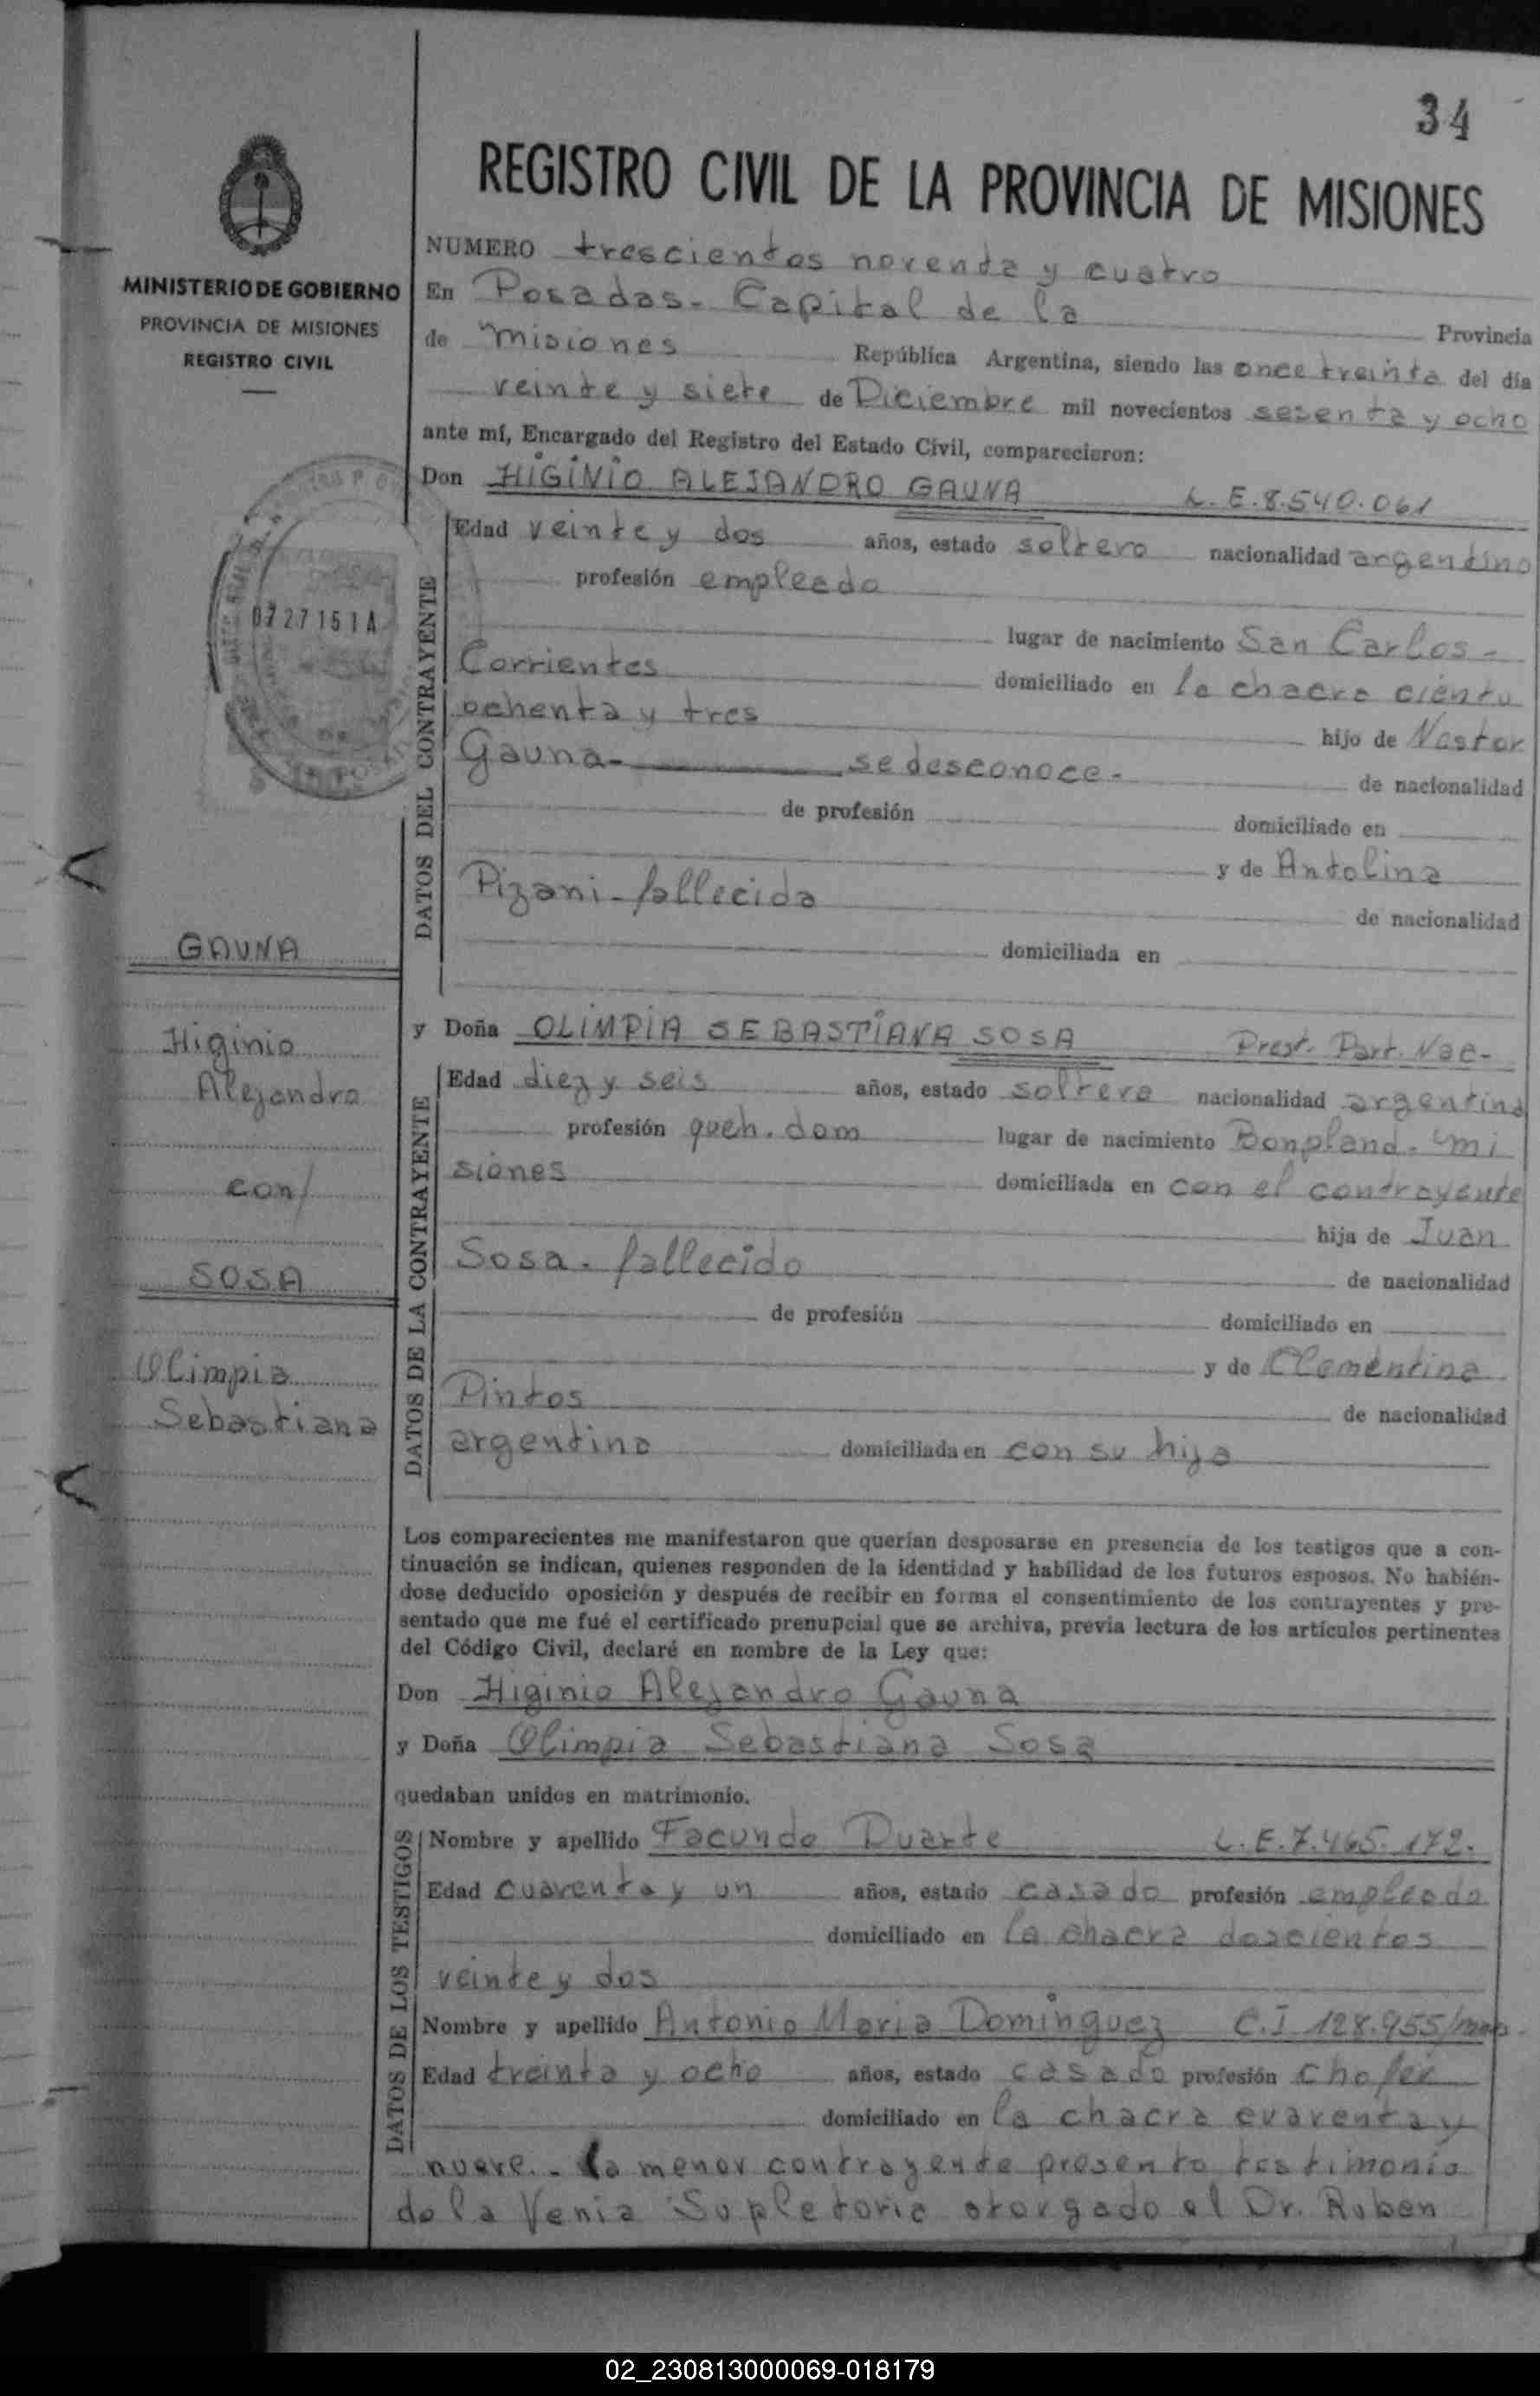 34
REGISTRO CIVIL DE LA PROVINCIA DE MISIONES
MINISTERIO DE GOBIERNO
PROVINCIA DE MISIONES
REGISTRO CIVIL
NUMERO trescientos noventa y cuatro
En Posadas - Capital de la Provincia
de Misiones República Argentina, siendo las once treinta del día
veinte y siete de Diciembre mil novecientos sesenta y ocho
ante mí, Encargado del Registro del Estado Civil, comparecieron:
Don HIGINIO ALEJANDRO GAUNA L.E. 8.540.061
DATOS DEL CONTRAYENTE
Edad veinte y dos años, estado soltero nacionalidad argentino
profesión empleado
0727151A
lugar de nacimiento San Carlos -
Corrientes domiciliado en la chacra ciento
ochenta y tres hijo de Nestor
Gauna - se desconoce - de nacionalidad
de profesión domiciliado en
y de Antolina
Pizani - fallecida de nacionalidad
domiciliada en
GAUNA
Higinio
Alejandro
con/
SOSA
Olimpia
Sebastiana
y Doña OLIMPIA SEBASTIANA SOSA Prest. Part. Nac -
DATOS DE LA CONTRAYENTE
Edad diez y seis años, estado soltera nacionalidad argentina
profesión queh. dom lugar de nacimiento Bonpland - Mi
siones domiciliada en con el contrayente
hija de Juan
Sosa - fallecido de nacionalidad
de profesión domiciliado en
y de Clementina
Pintos de nacionalidad
argentina domiciliada en con su hija
Los comparecientes me manifestaron que querían desposarse en presencia de los testigos que a con-
tinuación se indican, quienes responden de la identidad y habilidad de los futuros esposos. No habién-
dose deducido oposición y después de recibir en forma el consentimiento de los contrayentes y pre-
sentado que me fué el certificado prenupcial que se archiva, previa lectura de los artículos pertinentes
del Código Civil, declaré en nombre de la Ley que:
Don Higinio Alejandro Gauna
y Doña Olimpia Sebastiana Sosa
quedaban unidos en matrimonio.
DATOS DE LOS TESTIGOS
Nombre y apellido Facundo Duarte L.E. 7.465.172.
Edad cuarenta y un años, estado casado profesión empleado
domiciliado en la chacra doscientos
veinte y dos
Nombre y apellido Antonio Maria Dominguez C.I 128.955/mns.
Edad treinta y ocho años, estado casado profesión chofer
domiciliado en la chacra cuarenta y
nueve. - La menor contrayente presenta testimonio
de la Venia Supletoria otorgado el Dr. Ruben
02_230813000069-018179